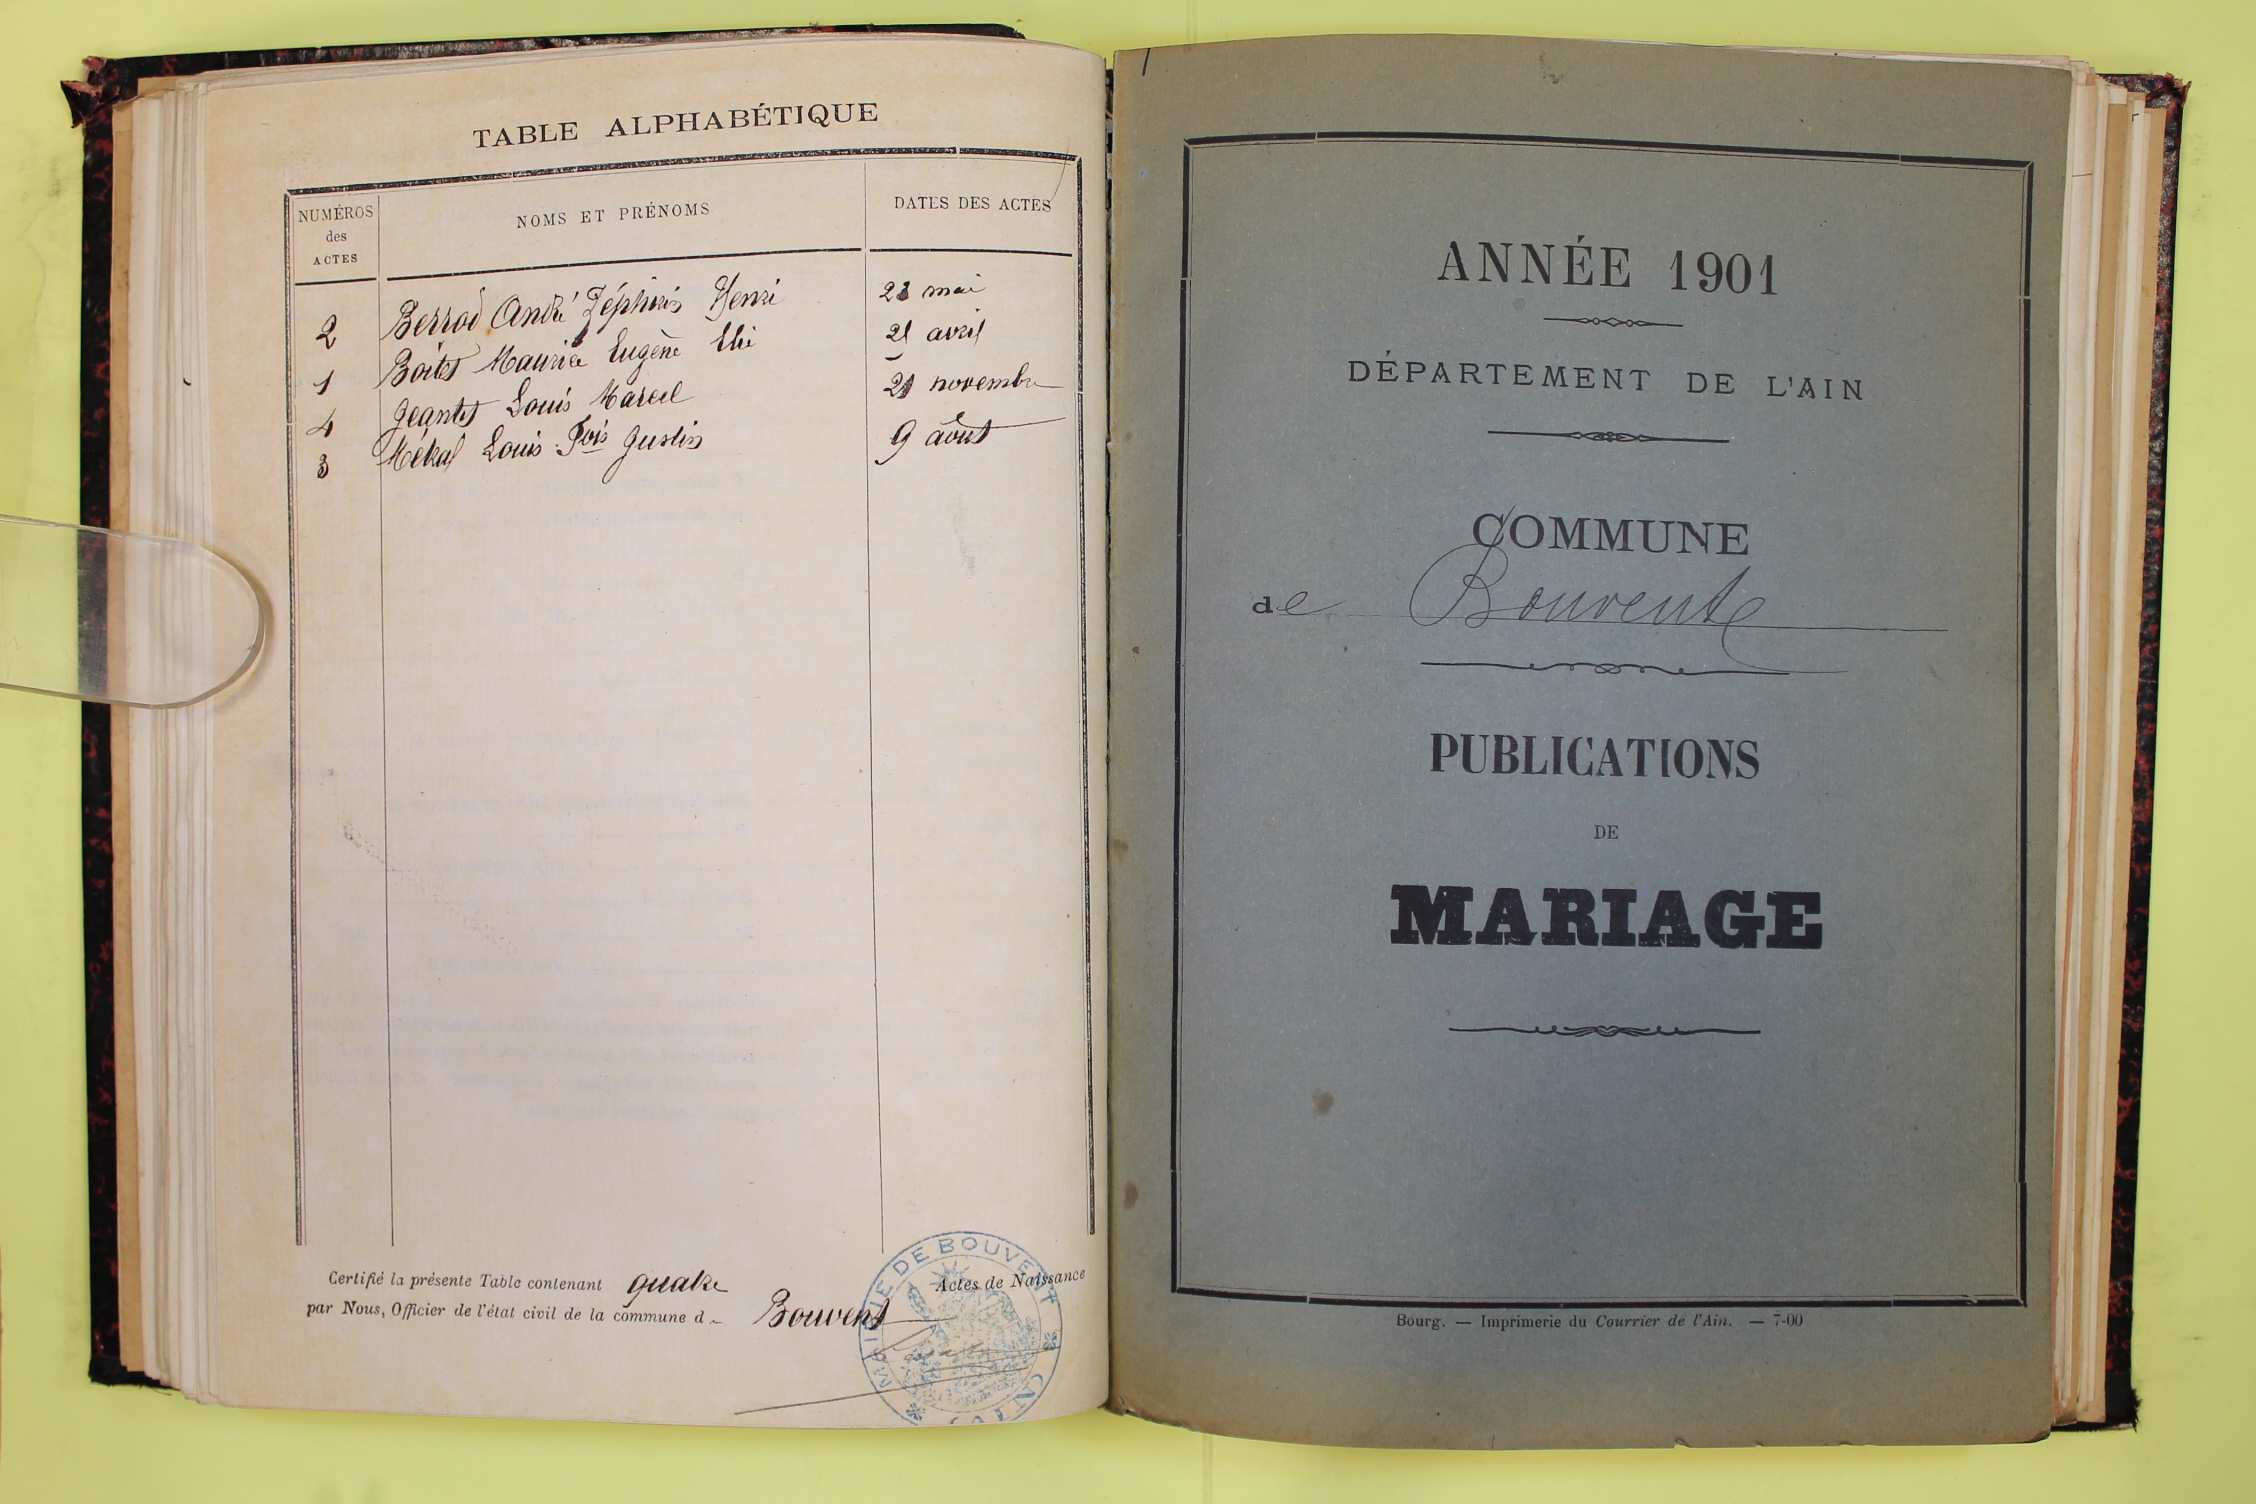 TABLE ALPHABÉTIQUE
NUMÉROS des ACTES
NOMS ET PRÉNOMS
DATES DES ACTES
2 Berrod André Zéphirin Henri
1 Boitet Maurice Eugène 21 avril
4 Jeantet Louis Marcel 21 novembre
3 Louis Fois Justin 9 août
Certifié la présente Table contenant quatre Actes de Naissance
par Nous, Officier de l'état civil de la commune de Bouvent
MAIRIE DE BOUVENT
ANNÉE 1901
DÉPARTEMENT DE L'AIN
COMMUNE
de Bouvent
PUBLICATIONS
DE
MARIAGE
Bourg. — Imprimerie du Courrier de l'Ain. — 7-00